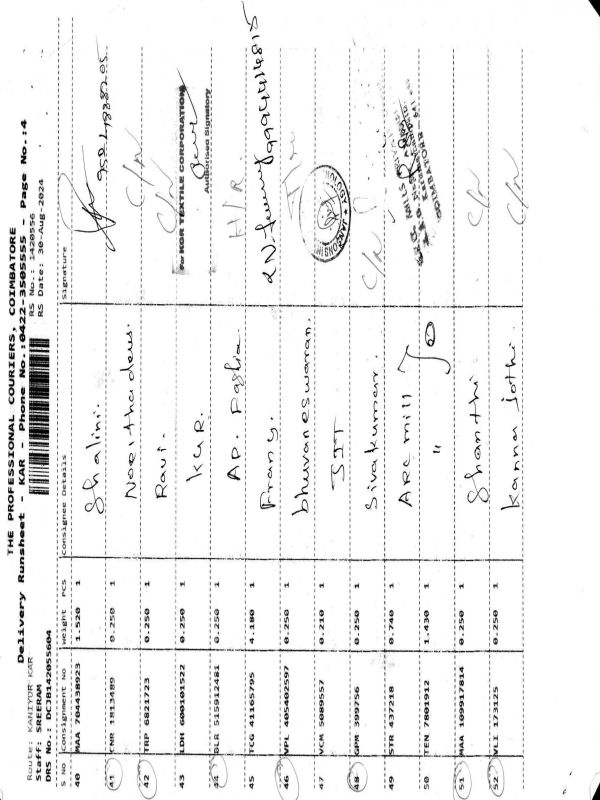 THE PROFESSIONAL COURIERS, COIMBATORE
Delivery Runsheet - KAR - Phone No.:0422-3505555 - Page No.:4
Route: KANIYUR KAR
Staff: SREERAM
DRS No.: DCJB142055604
RS No.: 1420556
RS Date: 30-Aug-2024
S No Consignment No Weight PCS Consignee Details Signature
40 MAA 704438923 1.520 1 Shalini.
41 CNR 1813489 0.250 1 C/N
42 TRP 6821723 0.250 1 Ravi. C/N
43 LDH 600101522 0.250 1 KGR. For KGR TEXTILE CORPORATION
Authorised Signatory
44 BLR 515912481 0.250 1 AP. H/R.
45 TCG 41165795 4.180 1
46 VPL 405402597 0.250 1 bhuvaneswaran.
47 VCM 5089557 0.210 1
48 GPM 399756 0.250 1 Sivakumar. C/N
49 STR 437218 0.740 1 ARC mill
50 TEN 7801912 1.430 1 "
51 MAA 109917814 0.250 1 Shanthi C/N
52 VLI 173125 0.250 1 Kanna Jothi. C/N